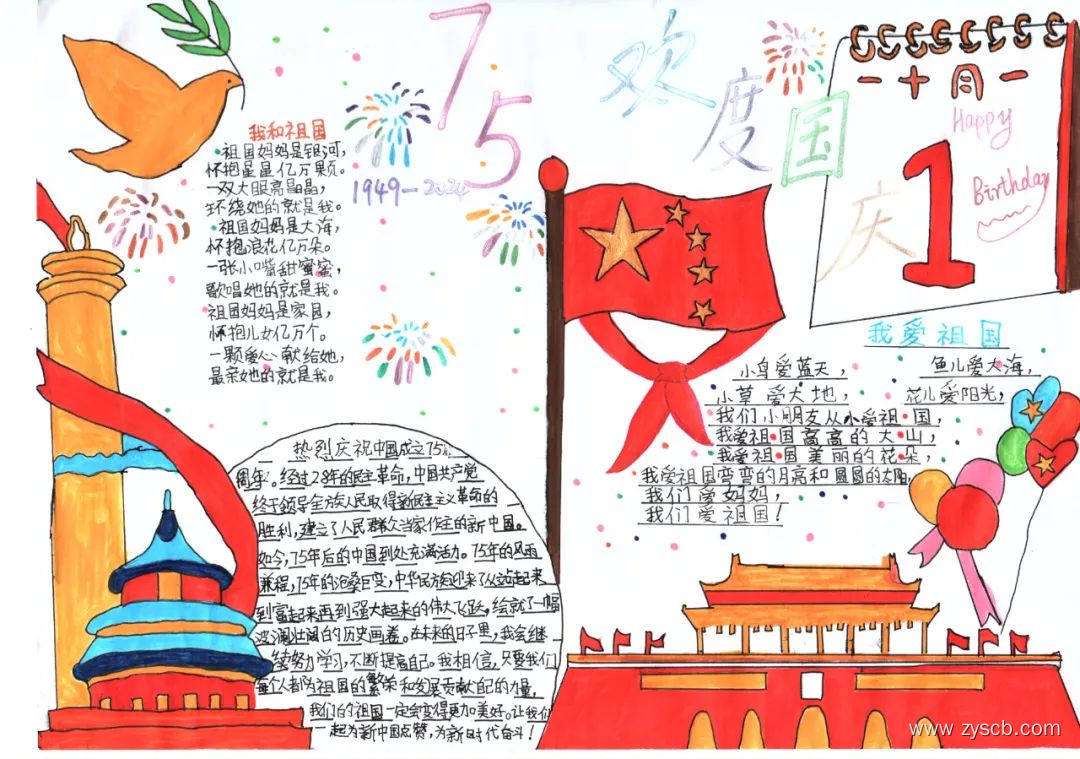 75
1949-2024
欢度国庆
一十月一
Happy
Birthday
1
我和祖国
祖国妈妈是银河,
怀抱星星亿万颗。
一双大眼亮晶晶,
环绕她的就是我。
祖国妈妈是大海,
怀抱浪花亿万朵。
一张小嘴甜蜜蜜,
歌唱她的就是我。
祖国妈妈是家园,
怀抱儿女亿万个。
一颗爱心献给她,
最亲她的就是我。
热烈庆祝中国成立75
周年。经过28年的民主革命,中国共产党
终于领导全族人民取得新民主主义革命的
胜利,建立了人民群众当家作主的新中国。
如今,75年后的中国到处充满活力。75年的风雨
兼程,75年的沧桑巨变,中华民族迎来了从站起来
到富起来再到强大起来的伟大飞跃,绘就了一幅
波澜壮阔的历史画卷。在未来的日子里,我会继
续努力学习,不断提高自己。我相信,只要我们
每个人都为祖国的繁荣和发展贡献自己的力量,
我们的祖国一定会变得更加美好。让我们
一起为新中国点赞,为新时代奋斗!
我爱祖国
小鸟爱蓝天, 鱼儿爱大海,
小草爱大地, 花儿爱阳光,
我们小朋友从小爱祖国,
我爱祖国高高的大山,
我爱祖国美丽的花朵,
我爱祖国弯弯的月亮和圆圆的太阳,
我们爱妈妈,
我们爱祖国!
www.zyscb.com